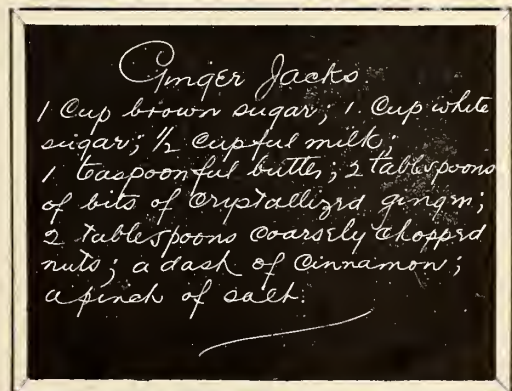 Ginger Jacks
1 Cup brown sugar; 1 Cup white
sugar; ½ Cupful milk;
1 teaspoonful butter; 2 tablespoons
of bits of Crystallized ginger;
2 tablespoons Coarsely Chopped
nuts; a dash of Cinnamon;
a pinch of salt.